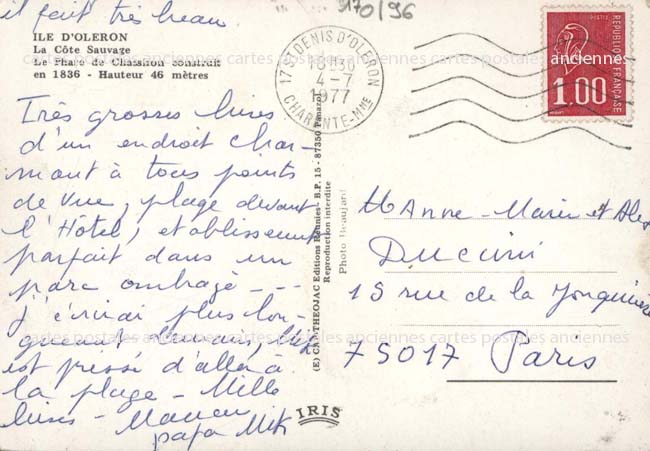 il fait très beau
ILE D'OLERON
La Côte Sauvage
Le Phare de Chassiron construit
en 1836 - Hauteur 46 mètres
Très grosses bises
d'un endroit char-
mant à tous points
de vue, plage devant
l'Hôtel, établissement
parfait dans un
parc ombragé - - -
J'écrirai plus lon-
guement demain,
est pressé d'aller à
la plage - Mille
bises - Maman
papa Mik
170/96
17 ST DENIS D'OLERON
18H30
4-7
1977
CHARENTE-MME
POSTES
REPUBLIQUE FRANÇAISE
1.00
(E) CAP-THEOJAC Editions Réunies - B.P. 15 - 87350 Panazol
Reproduction interdite
Photo Beaujard
IRIS
Anne-Marie et
15 rue de la Jonquière
75017 Paris
cartes postales anciennes cartes postales anciennes cartes postales anciennes
cartes postales anciennes cartes postales anciennes cartes postales anciennes